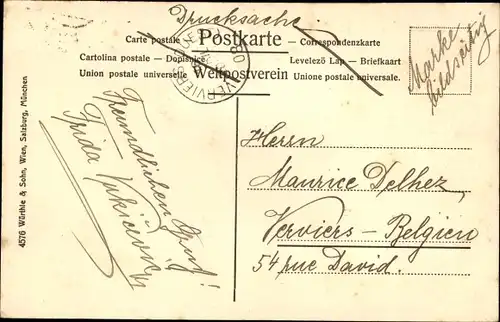 Drucksache
Carte postale Postkarte – Correspondenzkarte
Cartolina postale – Dopisnice Levelező Lap – Briefkaart
Union postale universelle Weltpostverein Unione postale universale.
VERVIERS 08
Marke
bildseitig
4576 Würthle & Sohn, Wien, Salzburg, München
Freundlichen Gruß!
Frida
Herrn
Maurice Delhez,
Verviers – Belgien
54 rue David.